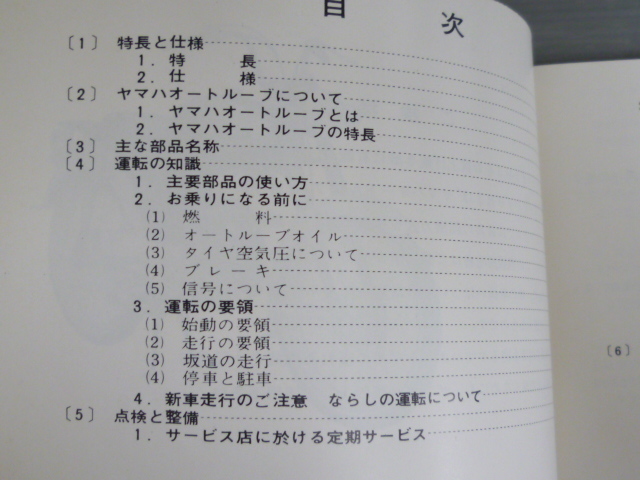 目次
〔1〕 特長と仕様
1. 特長
2. 仕様
〔2〕 ヤマハオートルーブについて
1. ヤマハオートルーブとは
2. ヤマハオートルーブの特長
〔3〕 主な部品名称
〔4〕 運転の知識
1. 主要部品の使い方
2. お乗りになる前に
(1) 燃料
(2) オートルーブオイル
(3) タイヤ空気圧について
(4) ブレーキ
(5) 信号について
3. 運転の要領
(1) 始動の要領
(2) 走行の要領
(3) 坂道の走行
(4) 停車と駐車
4. 新車走行のご注意 ならしの運転について
〔5〕 点検と整備
1. サービス店に於ける定期サービス
〔6〕